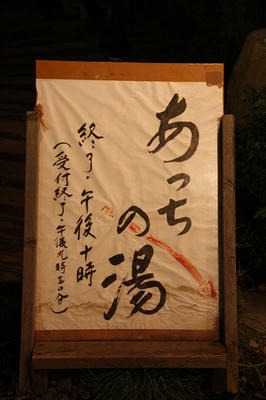 あっちの湯
終了・午後十時
(受付終了・午後九時三〇分)